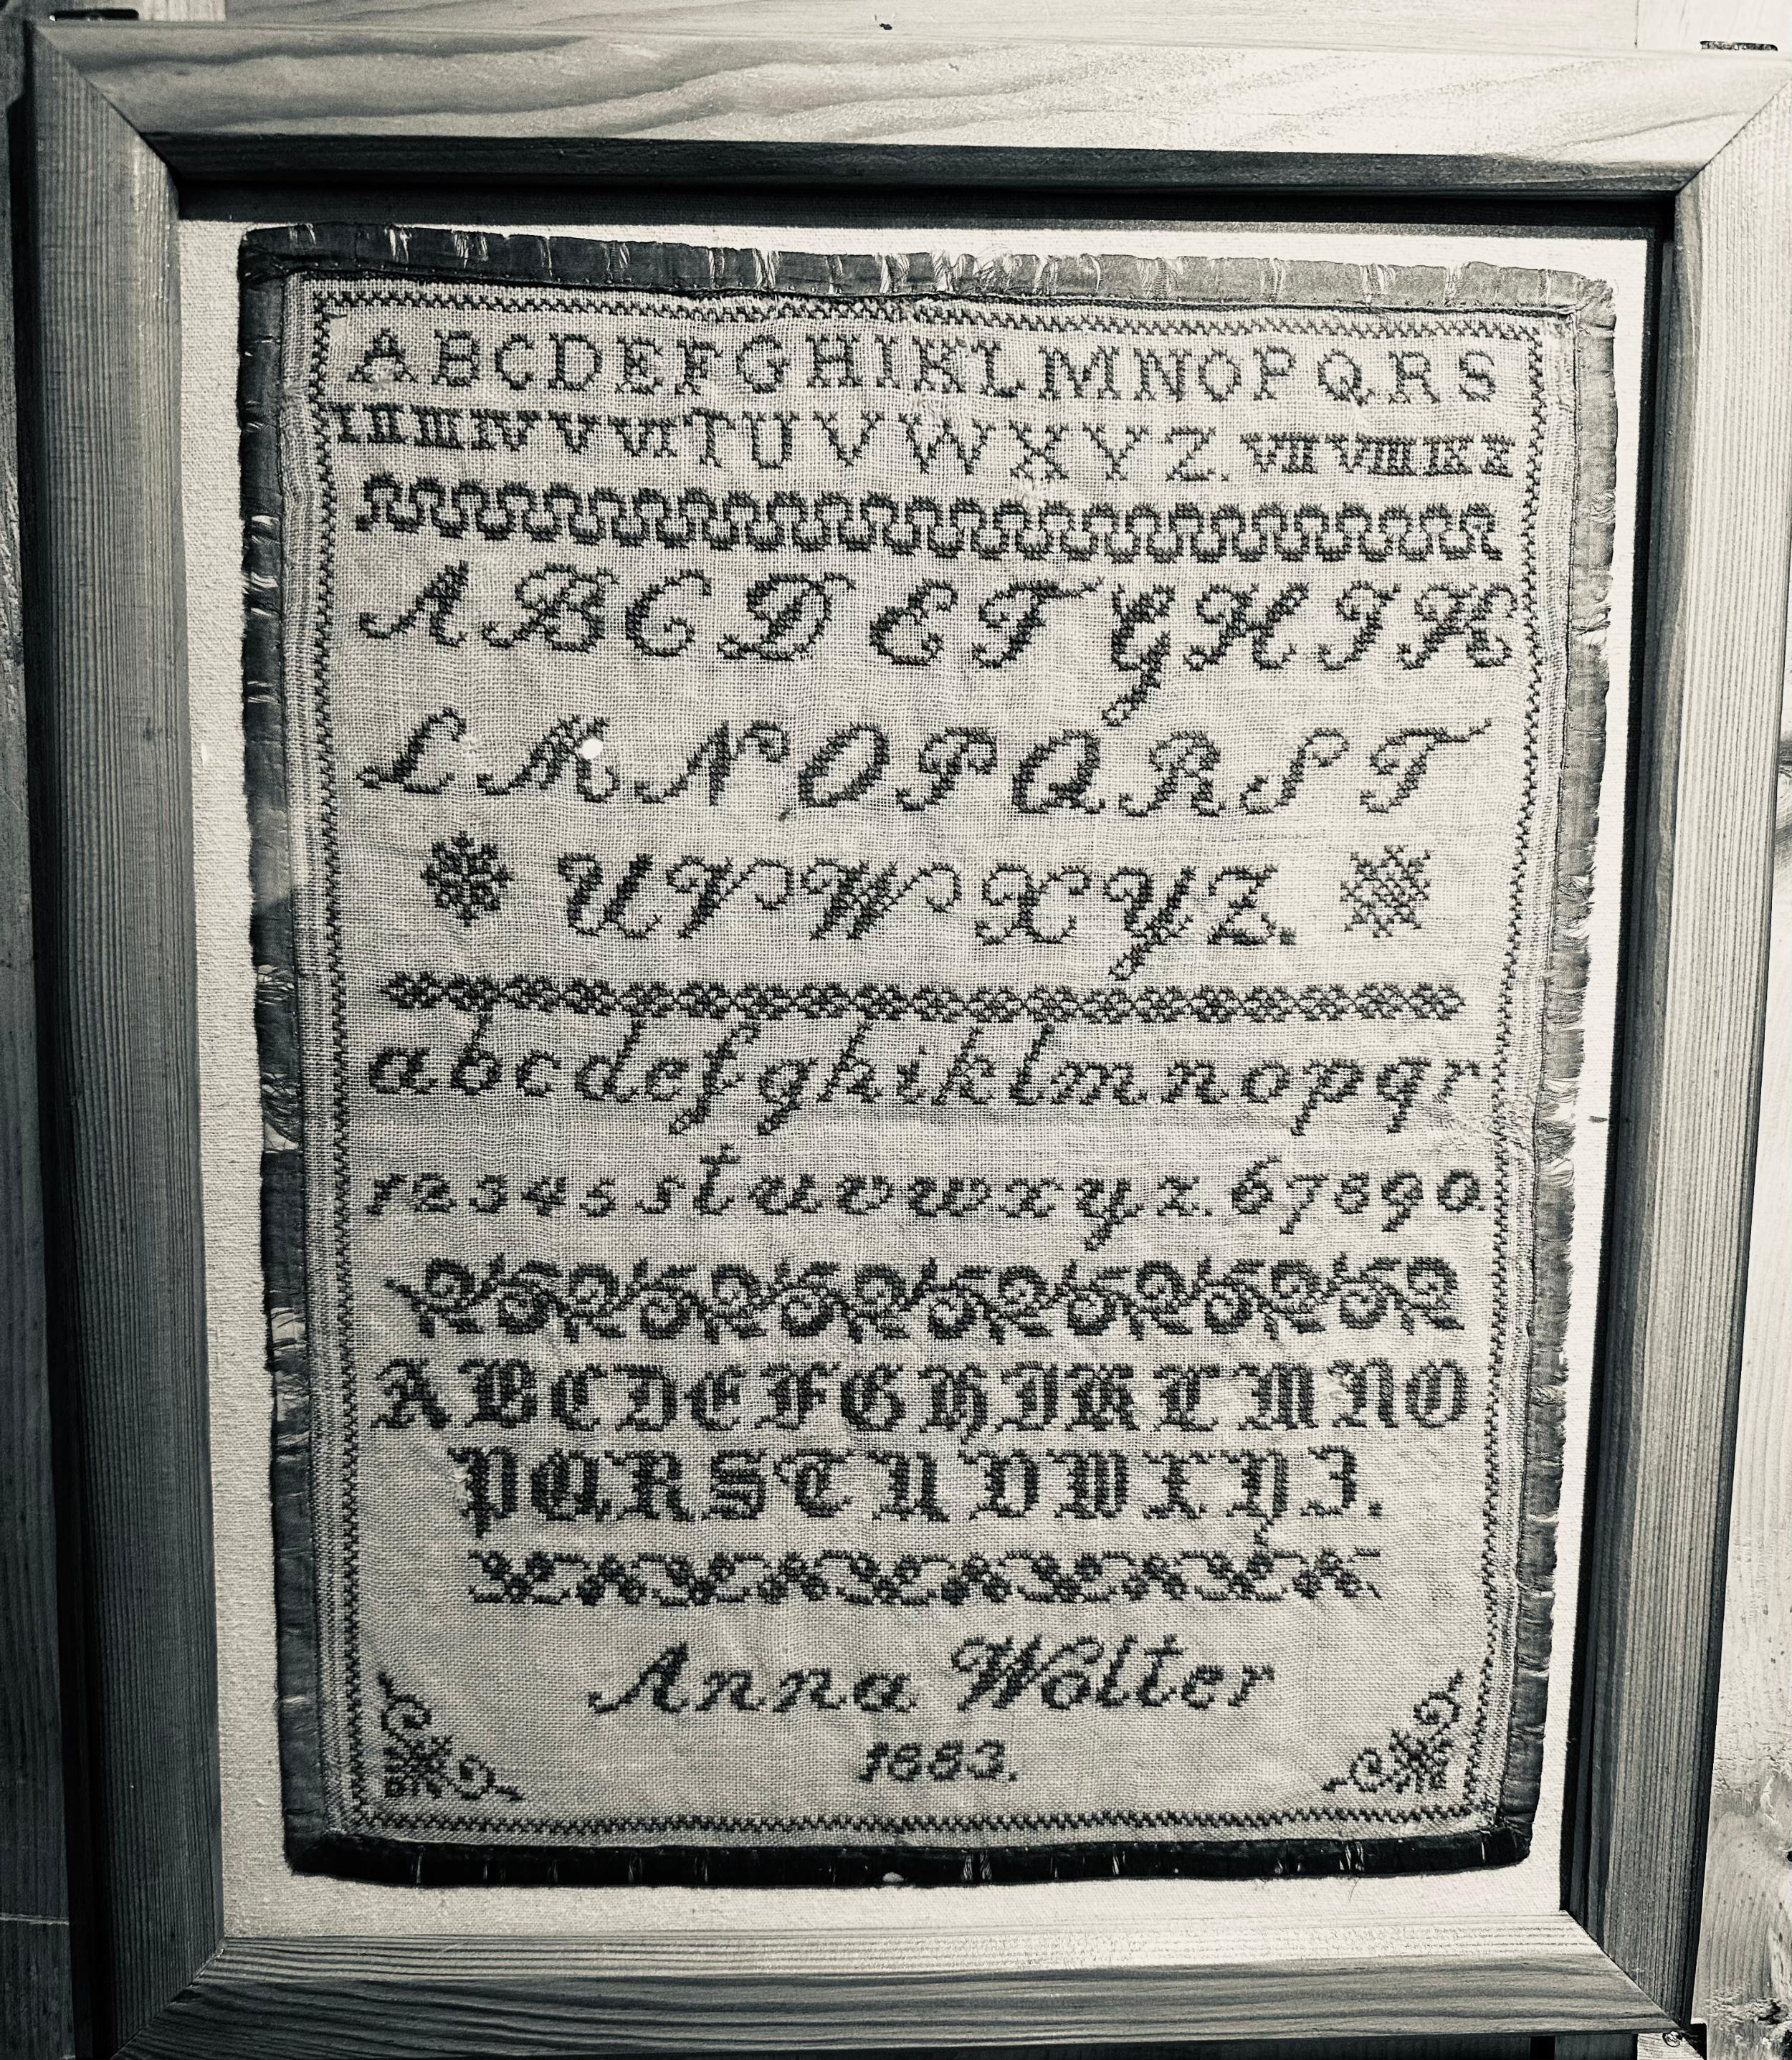 A B C D E F G H I K L M N O P Q R S
I II III IV V VI T U V W X Y Z. VII VIII IX X
A B C D E F G H I K
L M N O P Q R S T
U V W X Y Z.
a b c d e f g h i k l m n o p q r
1 2 3 4 5 s t u v w x y z. 6 7 8 9 0.
A B C D E F G H I K L M N O
P Q R S T U V W X Y Z.
Anna Wolter
1883.